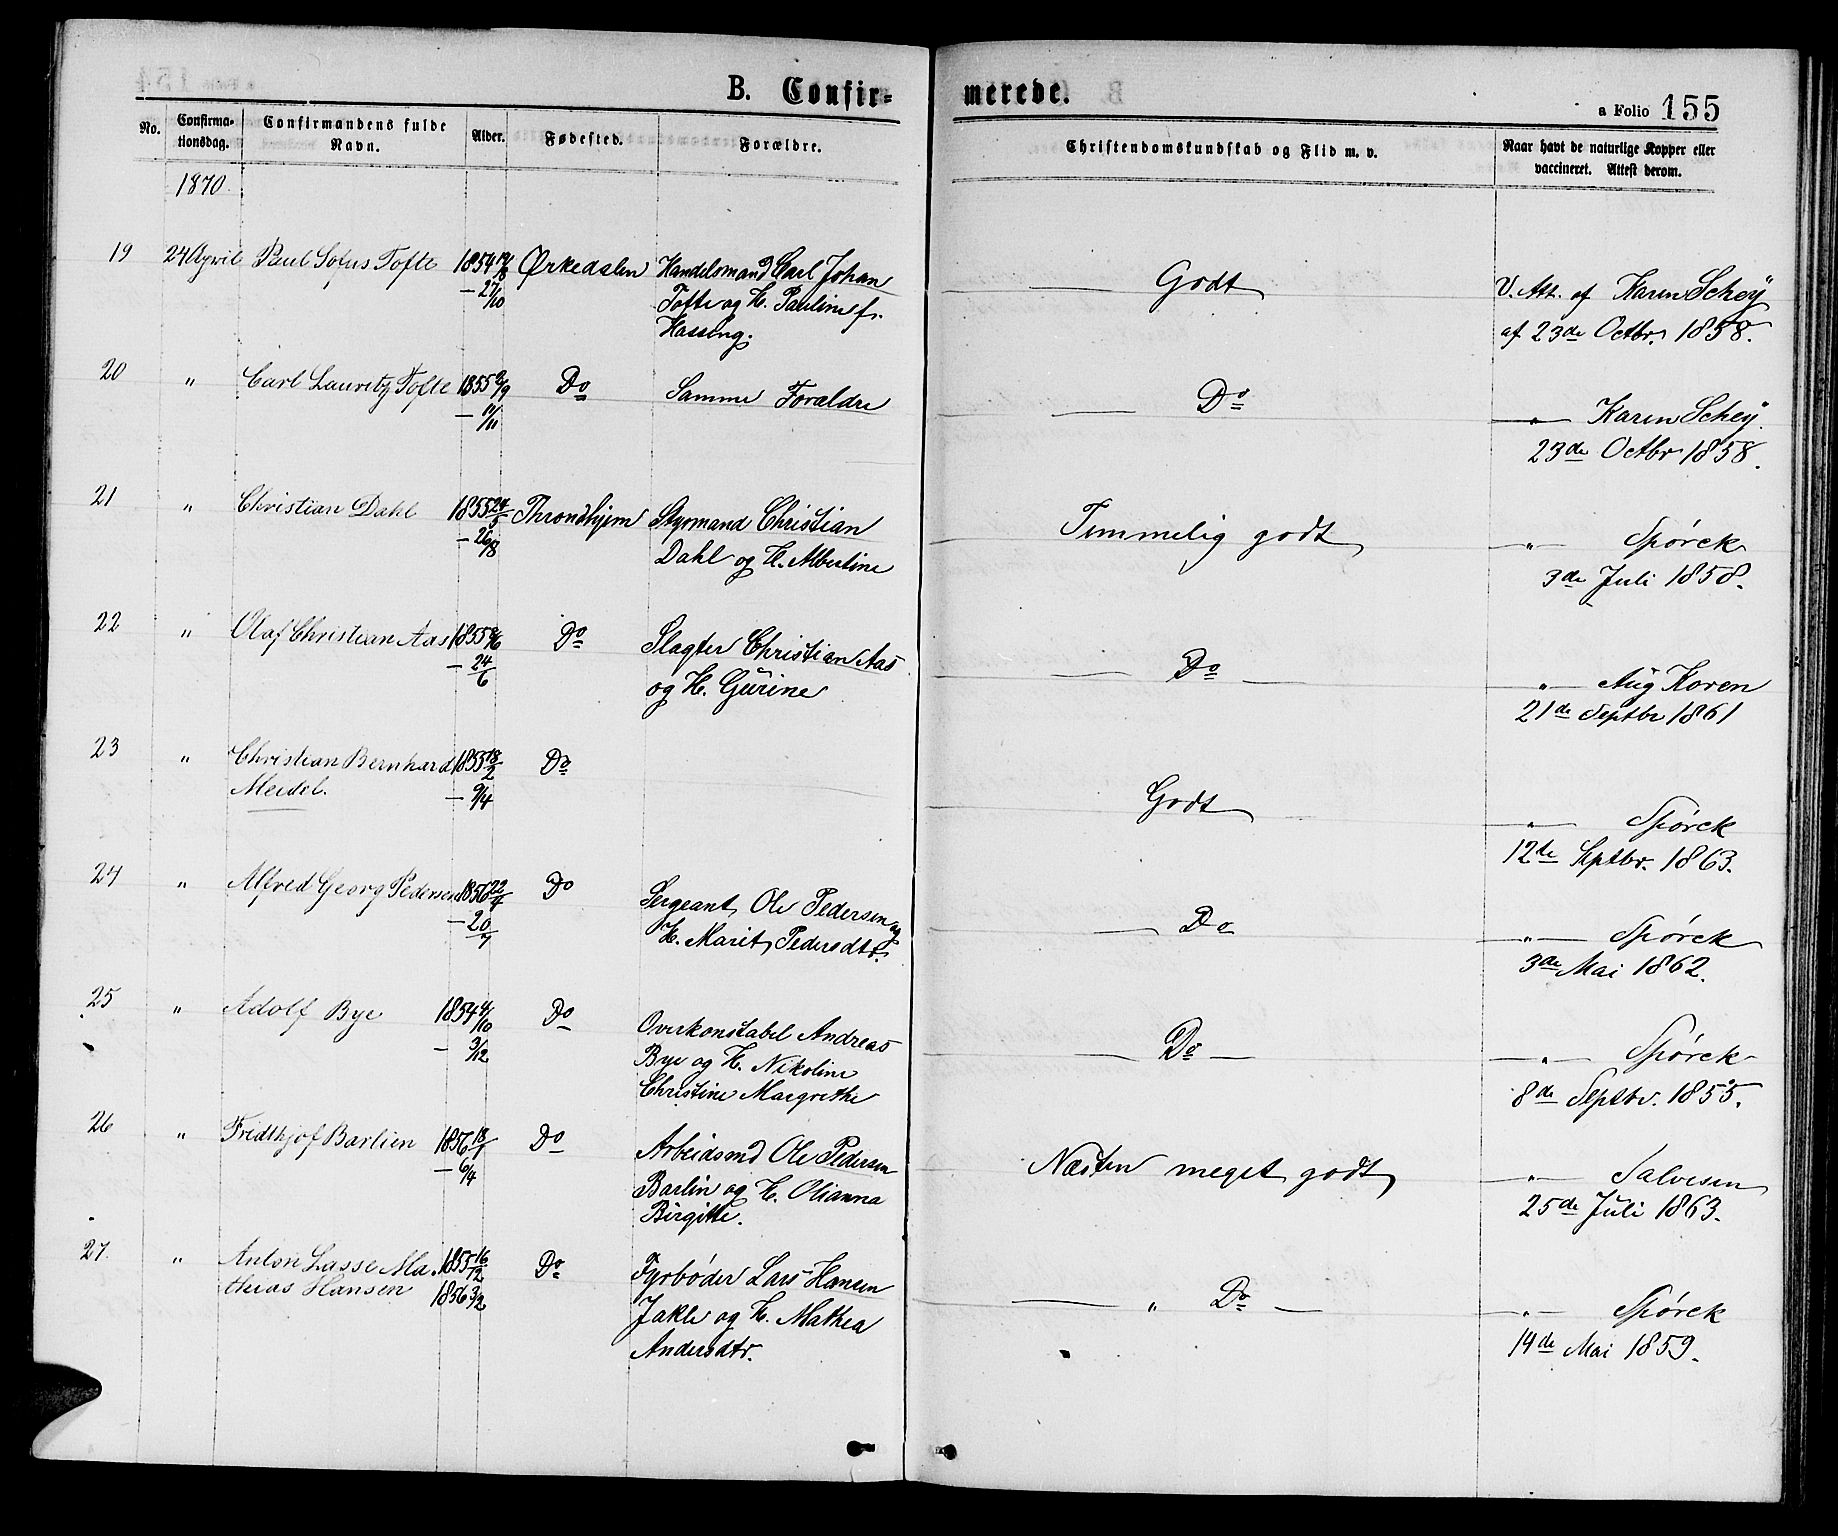 B. Confir-
merede.
a Folio 155
No.
Confirma-
tionsdag.
Confirmandens fulde
Navn.
Alder.
Fødested.
Forældre.
Christendomskundskab og Flid m. v.
Naar havt de naturlige Kopper eller
vaccineret. Attest derom.
1870.
19 24 April Paul Sofus Tofte 1854 Ørkedalen Handelsmand Carl Johan
- 27/10 Tofte og H. Pauline f.
Hassing.
Godt
V. Att. af Karen Schey
af 23de Octbr. 1858.
20 " Carl Lauritz Tofte 1855 Do Samme Forældre
Do
" Karen Schey.
23de Octbr 1858.
21 " Christian Dahl 1855 24/5 Throndhjem Styrmand Christian
- 26/8 Dahl og H. Albertine
Temmelig godt
" Spørck
3de Juli 1858.
22 " Olaf Christian Aas 1855 Do Slagter Christian Aas
- 24/6 og H. Gurine
Do
" Aug Koren
21de Septbr 1861
23 " Christian Bernhard 1855 18/2 Do
Meidel. - 9/4
Godt
" Spørck
12te Septbr. 1863.
24 " Alfred Georg Pedersen 1856 Do Sergeant Ole Pedersen og
- 20/7 H. Marit Pedersdtr.
Do
" Spørck
3de Mai 1862.
25 " Adolf Bye 1854 4/10 Do Overkonstabel Andreas
- 3/12 Bye og H. Nikoline
Christine Margrethe
Do
" Spørck
8de Septbr. 1855.
26 " Fridthjof Barlien 1856 18/1 Do Arbeidsmd Ole Pedersen
- 6/4 Barlin og H. Olianna
Birgitte.
Næsten meget godt
" Salvesen
25de Juli 1863.
27. " Anton Lasse Ma- 1855 16/12 Do Fyrbøder Lars Hansen
thias Hansen 1856 3/2 Jakle og H. Mathea
Andersdtr.
" Do
" Spørck
14de Mai 1859.